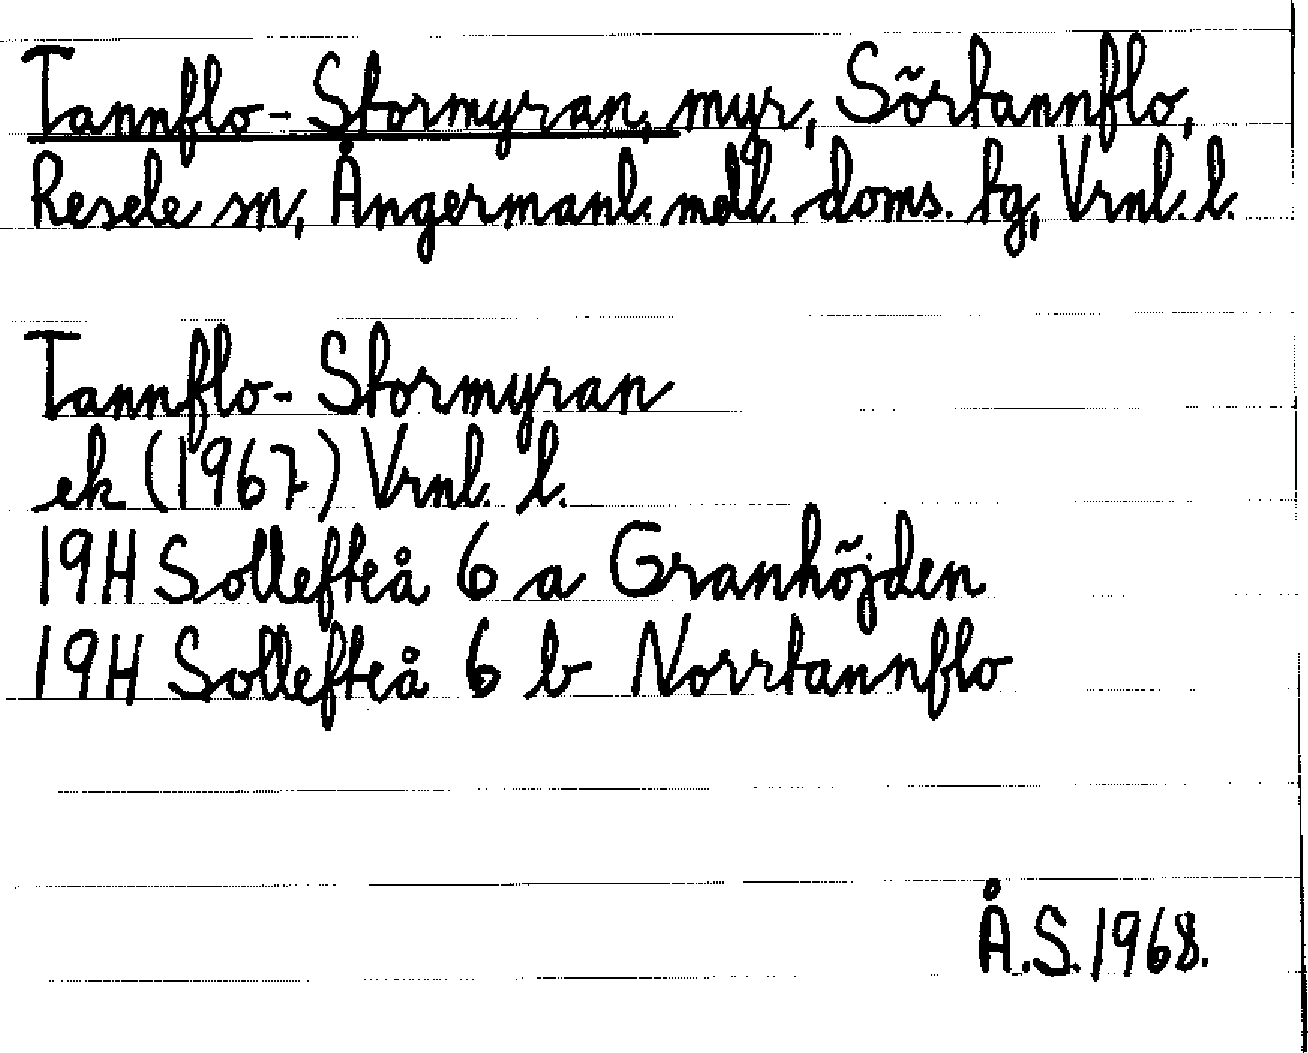 Tannflo-Stormyran, myr, Sörtannflo,
Resele sn, Ångermanl. mell. doms. tg, Vrnl. l.
Tannflo-Stormyran
ek (1967) Vrnl. l.
19H Sollefteå 6 a Granhöjden
19H Sollefteå 6 b Norrtannflo
Å.S. 1968.